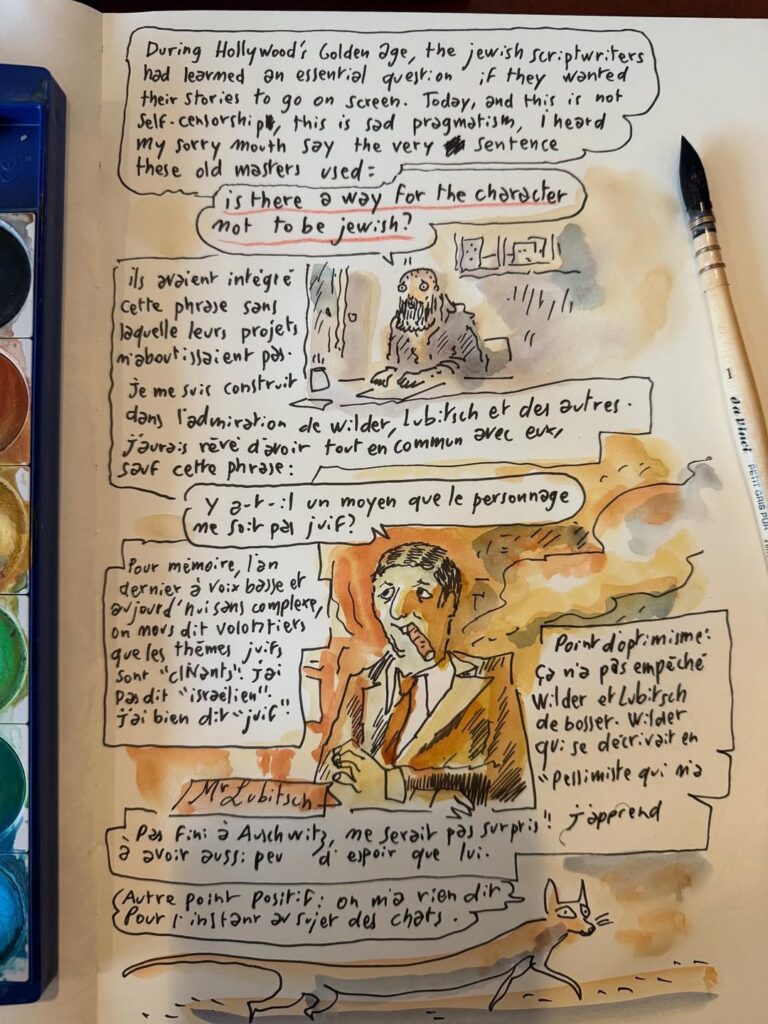 During Hollywood's Golden age, the jewish scriptwriters
had learned an essential question if they wanted
their stories to go on screen. Today, and this is not
self-censorship, this is sad pragmatism, I heard
my sorry mouth say the very sentence
these old masters used:
is there a way for the character
not to be jewish?
ils avaient intégré
cette phrase sans
laquelle leurs projets
n'aboutissaient pas.
Je me suis construit
dans l'admiration de Wilder, Lubitsch et des autres.
j'aurais rêvé d'avoir tout en commun avec eux,
sauf cette phrase:
Y a-t-il un moyen que le personnage
ne soit pas juif?
Pour mémoire, l'an
dernier à voix basse et
aujourd'hui sans complexe,
on nous dit volontiers
que les thèmes juifs
sont "clivants". j'ai
pas dit "israélien".
j'ai bien dit "juif".
Point d'optimisme:
ça n'a pas empêché
Wilder et Lubitsch
de bosser. Wilder
qui se décrivait en
"Pessimiste qui n'a
Pas fini à Auschwitz, ne serait pas surpris"!
j'apprend
à avoir aussi peu d'espoir que lui.
Mr Lubitsch
Autre point positif: on m'a rien dit
Pour l'instant au sujet des chats.
1 da Vinci PETIT GRIS PUR